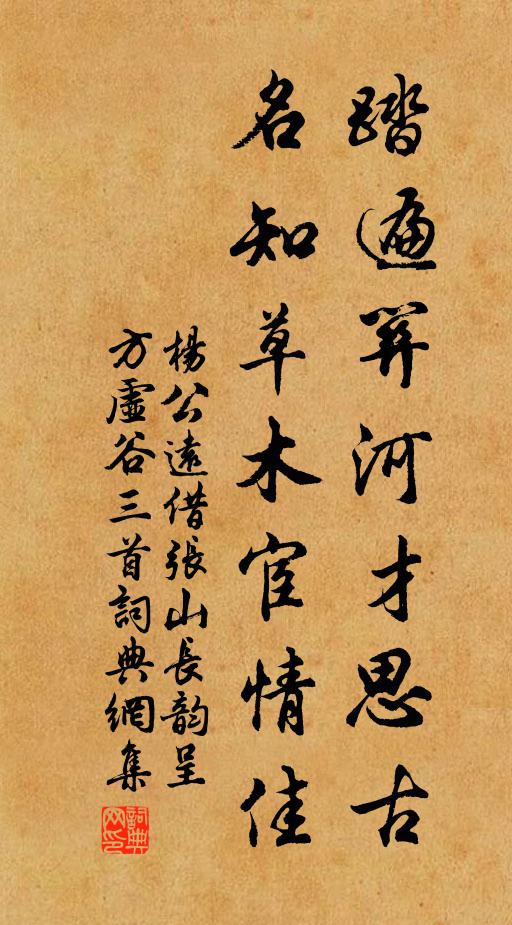 踏遍關河才思古
名知草木宦情佳
楊公遠借張山長韵呈
方虛谷三首詞典網集
詞典
网印